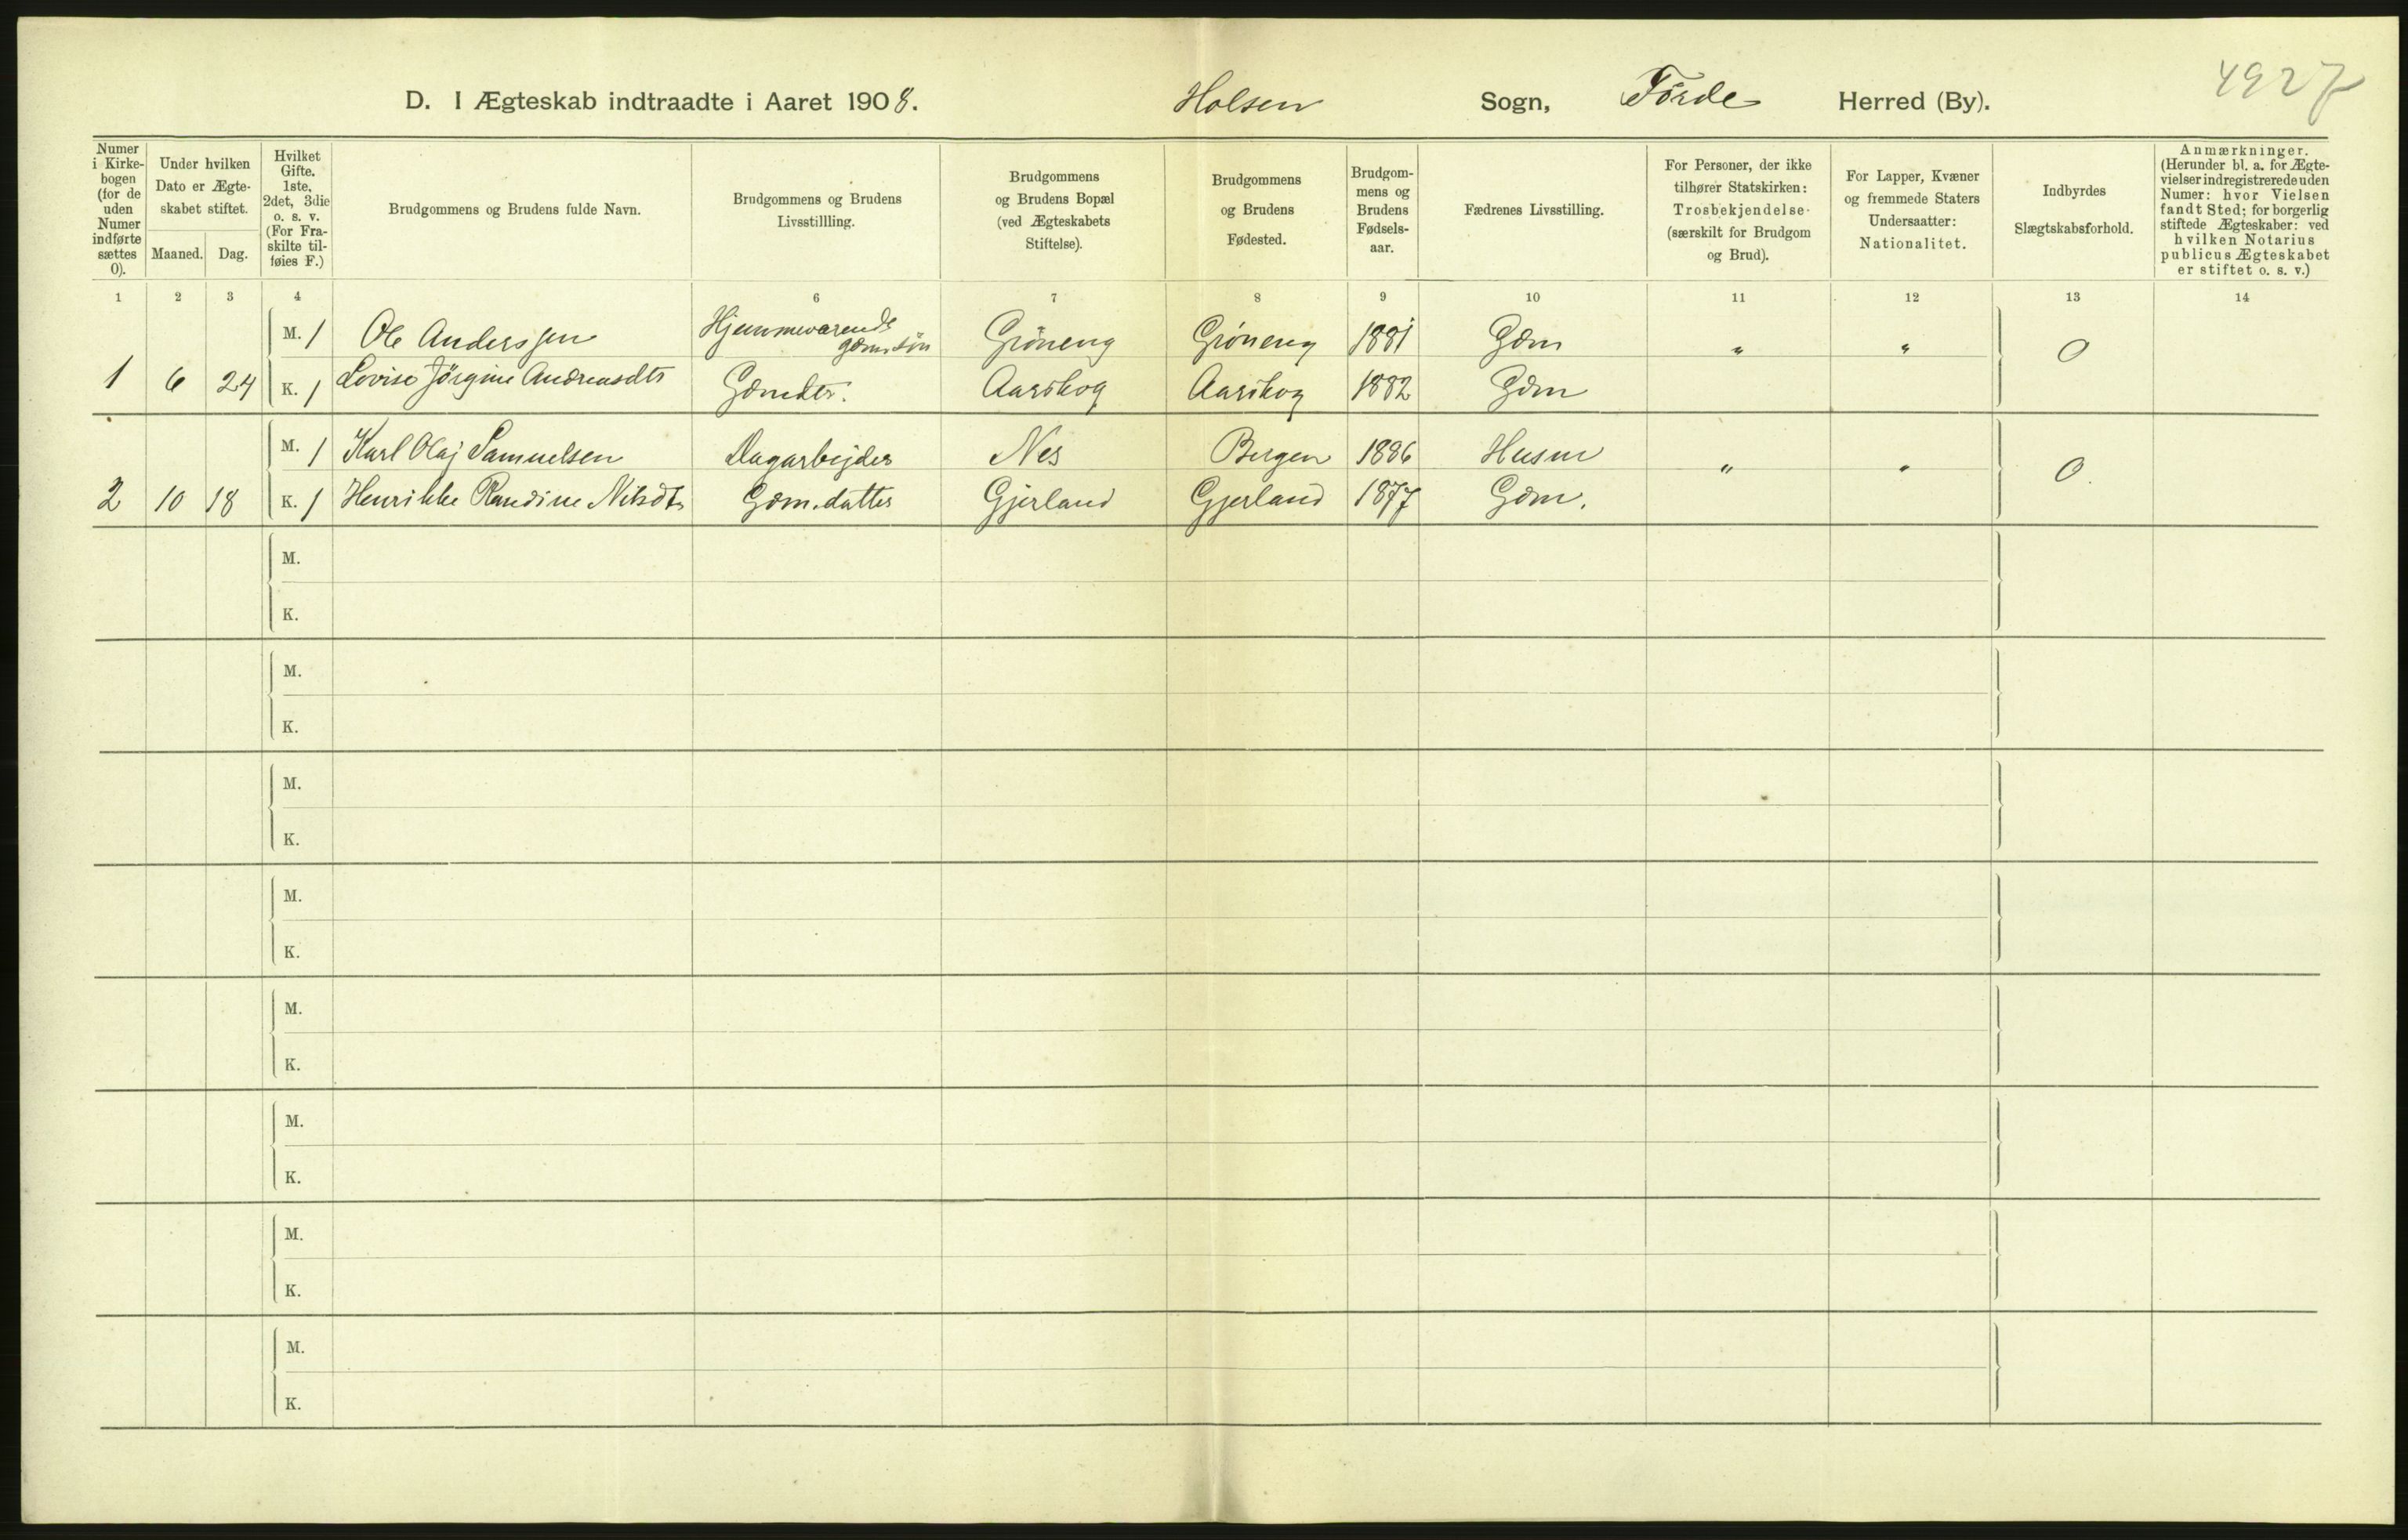 4927
D. I Ægteskab indtraadte i Aaret 1908. Holsen Sogn, Førde Herred (By).
Numer
i Kirke-
bogen
(for de
uden
Numer
indførte
sættes
0).
Under hvilken
Dato er Ægte-
skabet stiftet.
Maaned. Dag.
Hvilket
Gifte.
1ste,
2det, 3die
o. s. v.
(For Fra-
skilte til-
føies F.)
Brudgommens og Brudens fulde Navn.
Brudgommens og Brudens
Livsstillling.
Brudgommens
og Brudens Bopæl
(ved Ægteskabets
Stiftelse).
Brudgommens
og Brudens
Fødested.
Brudgom-
mens og
Brudens
Fødsels-
aar.
Fædrenes Livsstilling.
For Personer, der ikke
tilhører Statskirken:
Trosbekjendelse·
(særskilt for Brudgom
og Brud).
For Lapper, Kvæner
og fremmede Staters
Undersaatter:
Nationalitet.
Indbyrdes
Slægtskabsforhold.
Anmærkninger.
(Herunder bl. a. for Ægte-
vielser indregistrerede uden
Numer: hvor Vielsen
fandt Sted; for borgerlig
stiftede Ægteskaber: ved
hvilken Notarius
publicus Ægteskabet
er stiftet o. s. v.)
1 2 3 4 6 7 8 9 10 11 12 13 14
M. 1 Ole Anderssen Hjemmeværende gdm. søn Grøneng Grøneng 1881 Gdm " " 0
1 6 24 K. 1 Lovise Jørgine Andreasdtr Gdmdtr. Aarskog Aarskog 1882 Gdm
M. 1 Karl Olaj Samuelsen Dagarbejder Nes Bergen 1886 Husm " " 0.
2 10 18 K. 1 Henrikke Randine Nilsdtr Gdm. datter Gjerland Gjerland 1877 Gdm.
M.
K.
M.
K.
M.
K.
M.
K.
M.
K.
M.
K.
M.
K.
M.
K.